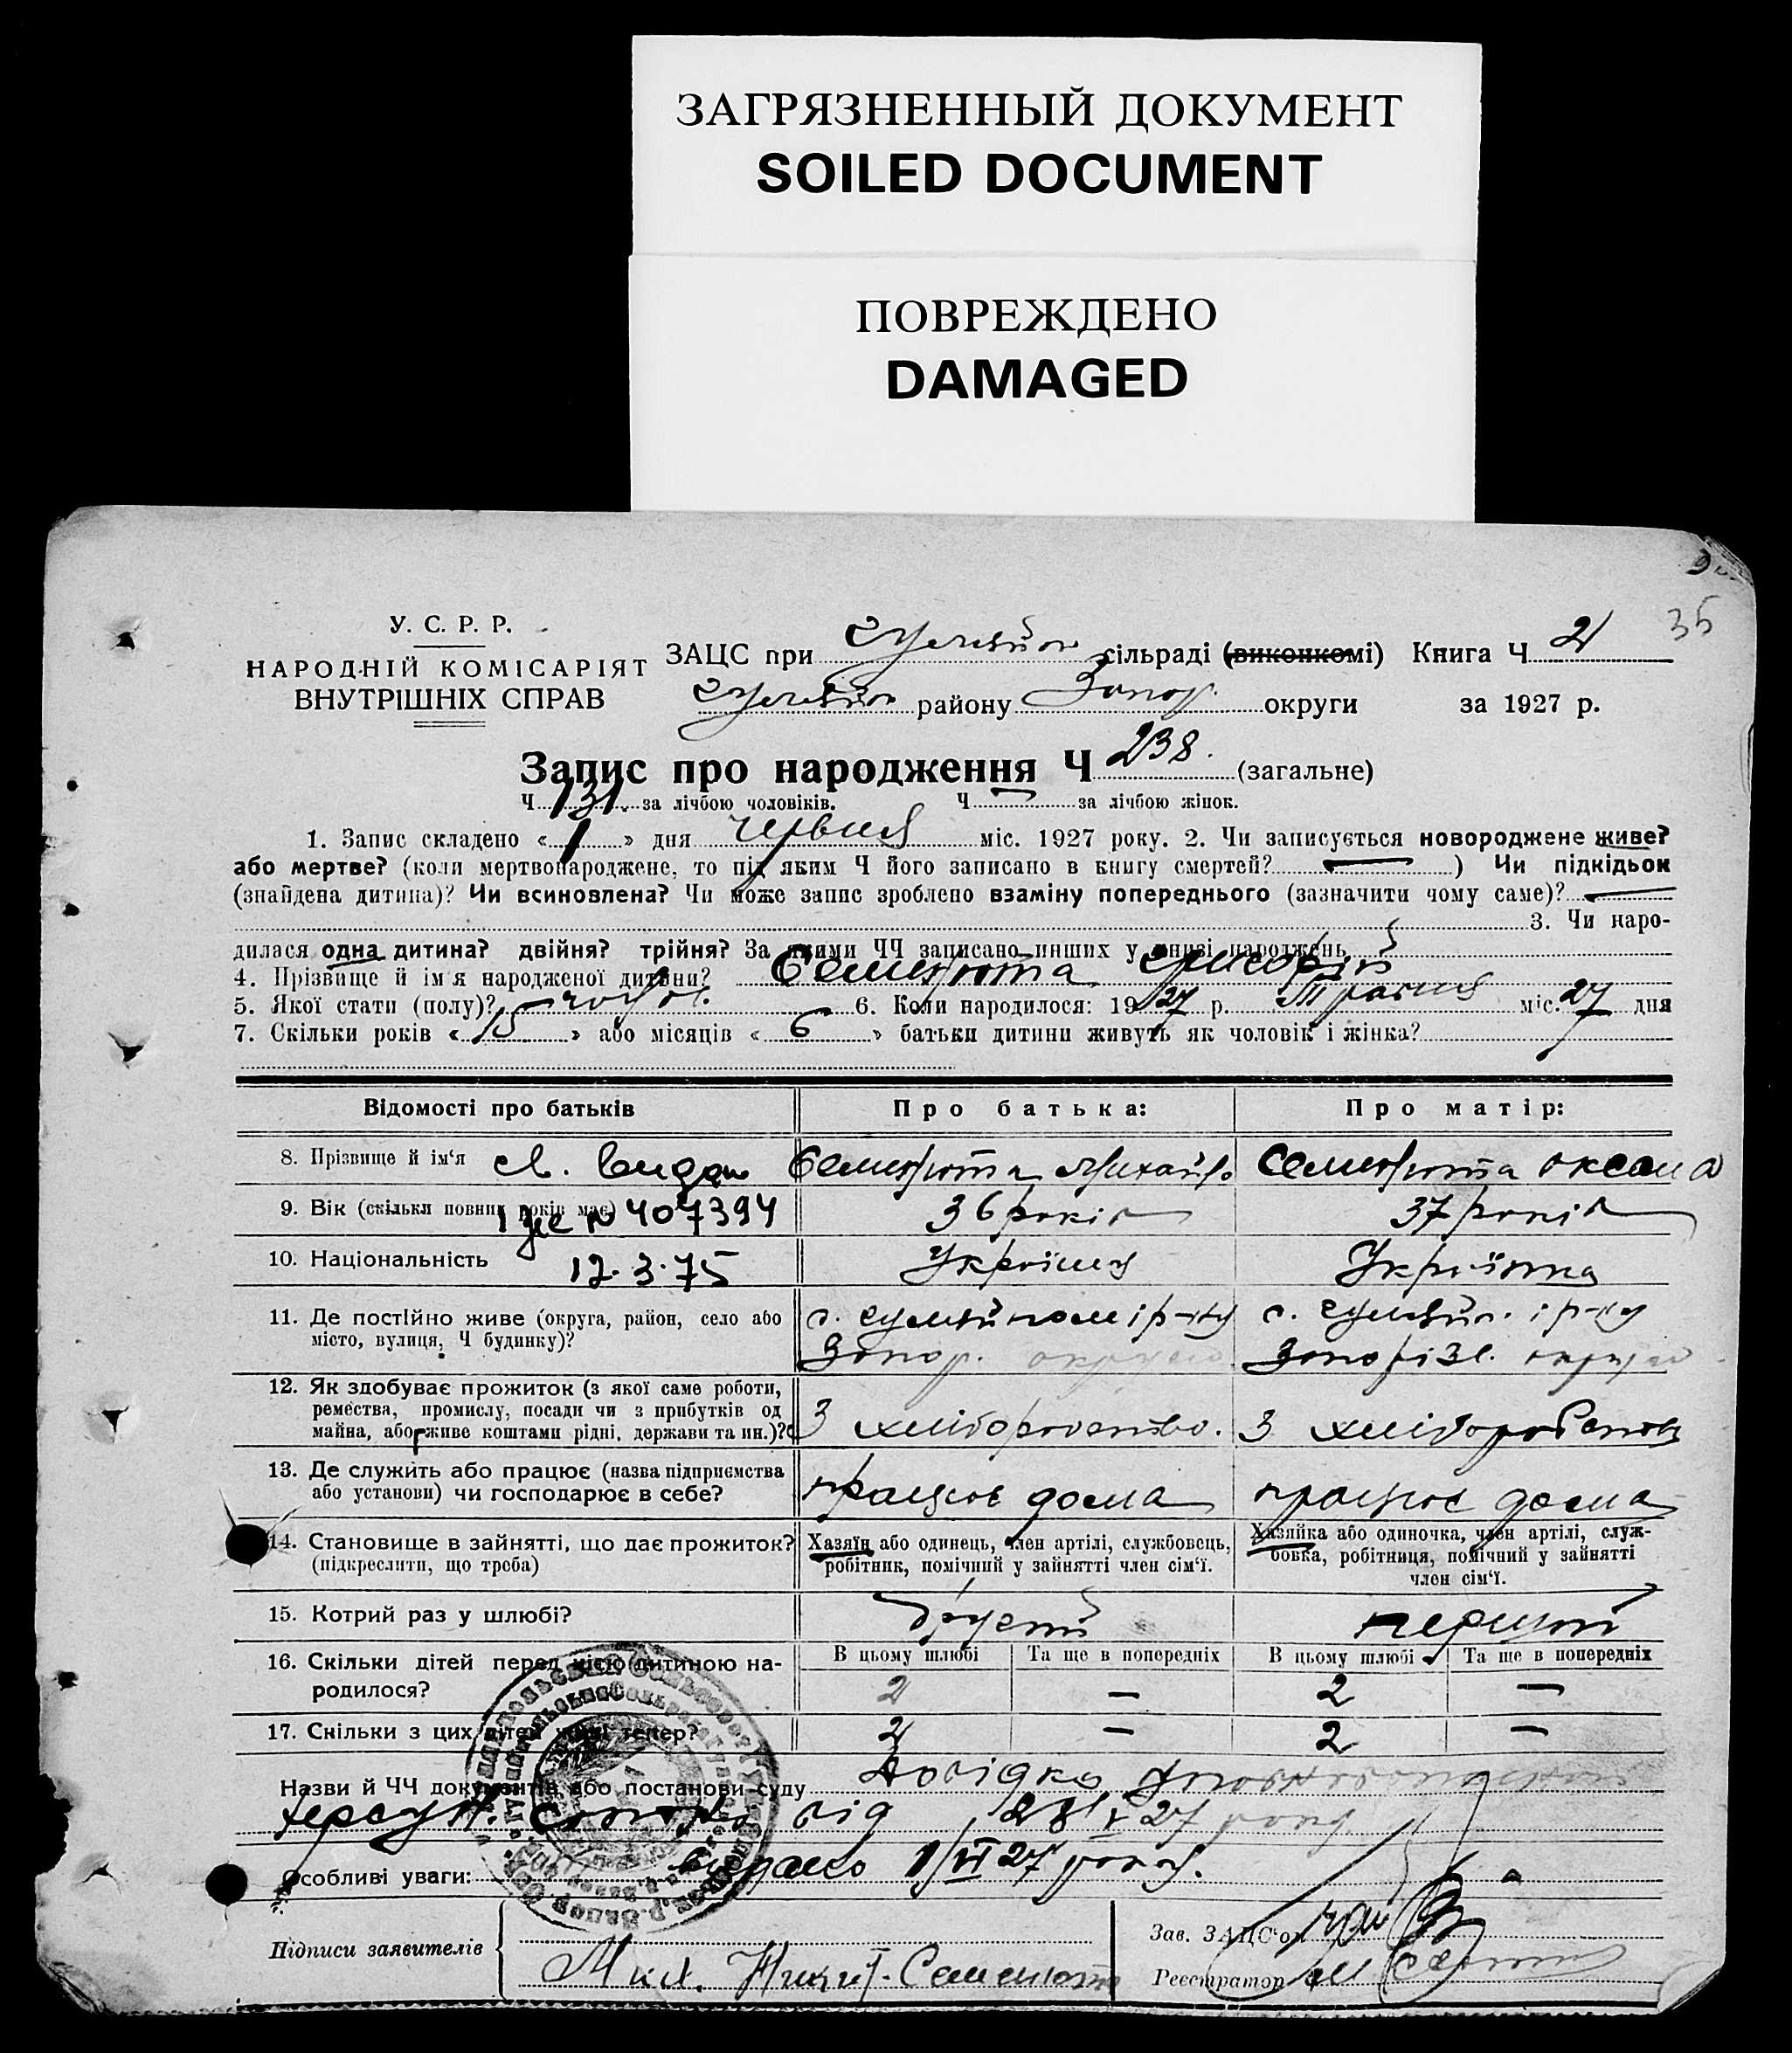 ЗАГРЯЗНЕННЫЙ ДОКУМЕНТ
SOILED DOCUMENT
ПОВРЕЖДЕНО
DAMAGED
35
У. С. Р. Р.
НАРОДНІЙ КОМІСАРІЯТ
ВНУТРІШНІХ СПРАВ
ЗАЦС при сільраді (виконкомі) Книга Ч 2
району Запор. округи за 1927 р.
Запис про народження Ч 238. (загальне)
Ч 131. за лічбою чоловіків. Ч — за лічбою жінок.
1. Запис складено « 1 » дня червня міс. 1927 року. 2. Чи записується новороджене живе?
або мертве? (коли мертвонароджене, то під яким Ч його записано в книгу смертей? — ) Чи підкідьок
(знайдена дитина)? Чи всиновлена? Чи може запис зроблено взаміну попереднього (зазначити чому саме)? —
3. Чи наро-
дилася одна дитина? двійня? трійня? За якими ЧЧ записано инших у книзі народжень
4. Прізвище й ім'я народженої дитини? Семенюта Григорій
5. Якої стати (полу)? чолов. 6. Коли народилося: 1927 р. Травня міс. 27 дня
7. Скільки років « 15 » або місяців « 6 » батьки дитини живуть як чоловік і жінка?
Відомості про батьків Про батька: Про матір:
8. Прізвище й ім'я Семенюта Михайло Семенюта Оксана
9. Вік (скільки повних років має) № 407394 36 років 37 років
10. Національність 12.3.75 Українець Українка
11. Де постійно живе (округа, район, село або
місто, вулиця, Ч будинку)?
Запор. округи Запорізь. округи
12. Як здобуває прожиток (з якої саме роботи,
ремества, промислу, посади чи з прибутків од
майна, або живе коштами рідні, держави та ин.)? З хліборобства. З хліборобства
13. Де служить або працює (назва підприємства
або установи) чи господарює в себе? працює дома працює дома
14. Становище в зайнятті, що дає прожиток?
(підкреслити, що треба)
Хазяїн або одинець, член артілі, службовець,
робітник, помічний у зайнятті член сім'ї.
Хазяйка або одиночка, член артілі, служ-
бовка, робітниця, помічний у зайнятті
член сім'ї.
15. Котрий раз у шлюбі? другий перший
В цьому шлюбі Та ще в попередніх В цьому шлюбі Та ще в попередніх
16. Скільки дітей перед цією дитиною на-
родилося? 2 — 2 —
17. Скільки з цих дітей живі тепер? 2 — 2 —
Назви й ЧЧ документів або постанови суду Довідка
від 28/V 27 року
Особливі уваги: видано 1/VI 27 року.
Підписи заявителів
Семенюта
Зав. ЗАЦС'ом
Реєстратор